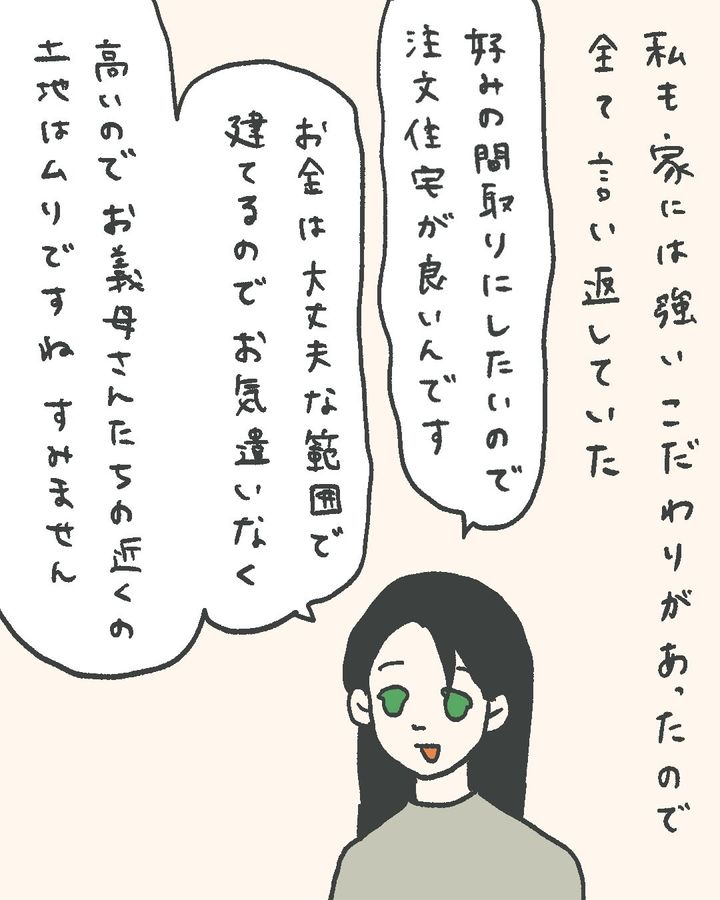 私も家には強いこだわりがあったので
全て言い返していた
好みの間取りにしたいので
注文住宅が良いんです
お金は大丈夫な範囲で
建てるのでお気遣いなく
高いのでお義母さんたちの近くの
土地はムリですね すみません